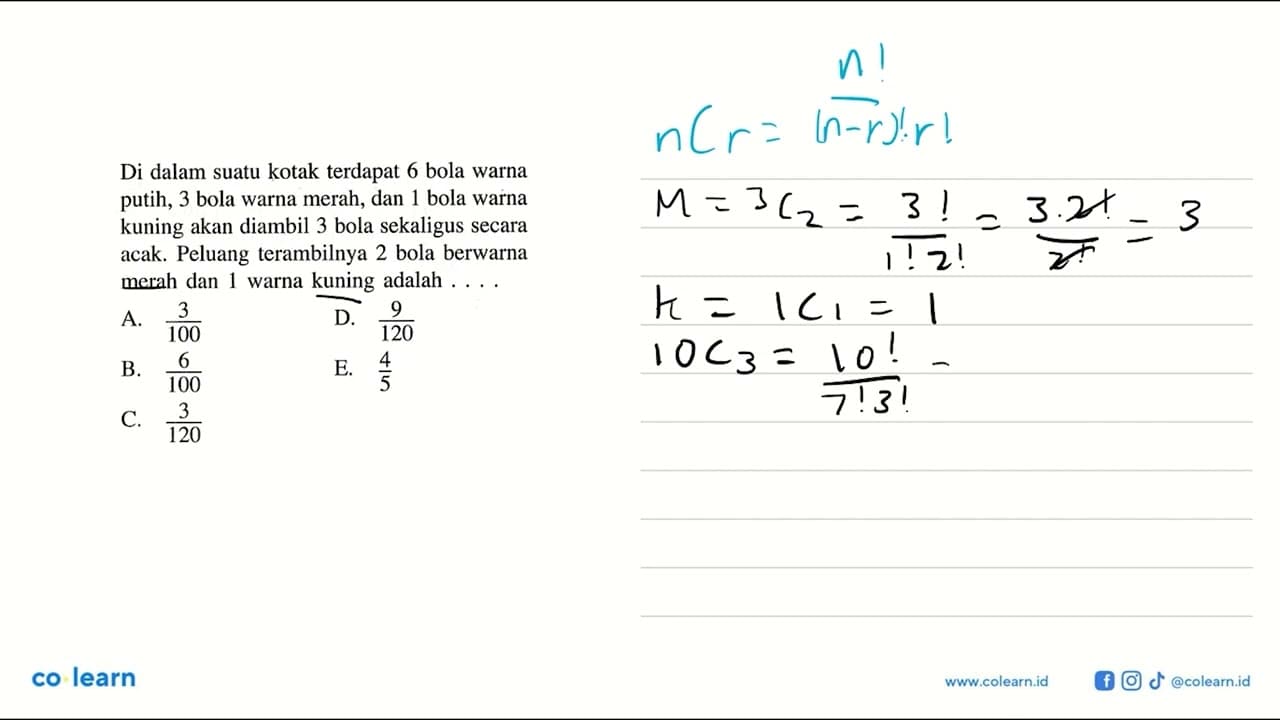 Di dalam suatu kotak terdapat 6 bola warna
putih, 3 bola warna merah, dan 1 bola warna
kuning akan diambil 3 bola sekaligus secara
acak. Peluang terambilnya 2 bola berwarna
merah dan 1 warna kuning adalah . . . .
A. 3/100
B. 6/100
C. 3/120
D. 9/120
E. 4/5
nCr = n!/(n-r)!.r!
M = 3C2 = 3!/1!2! = 3.2!/2! = 3
k = 1C1 = 1
10C3 = 10!/7!3! =
co learn
www.colearn.id
@colearn.id